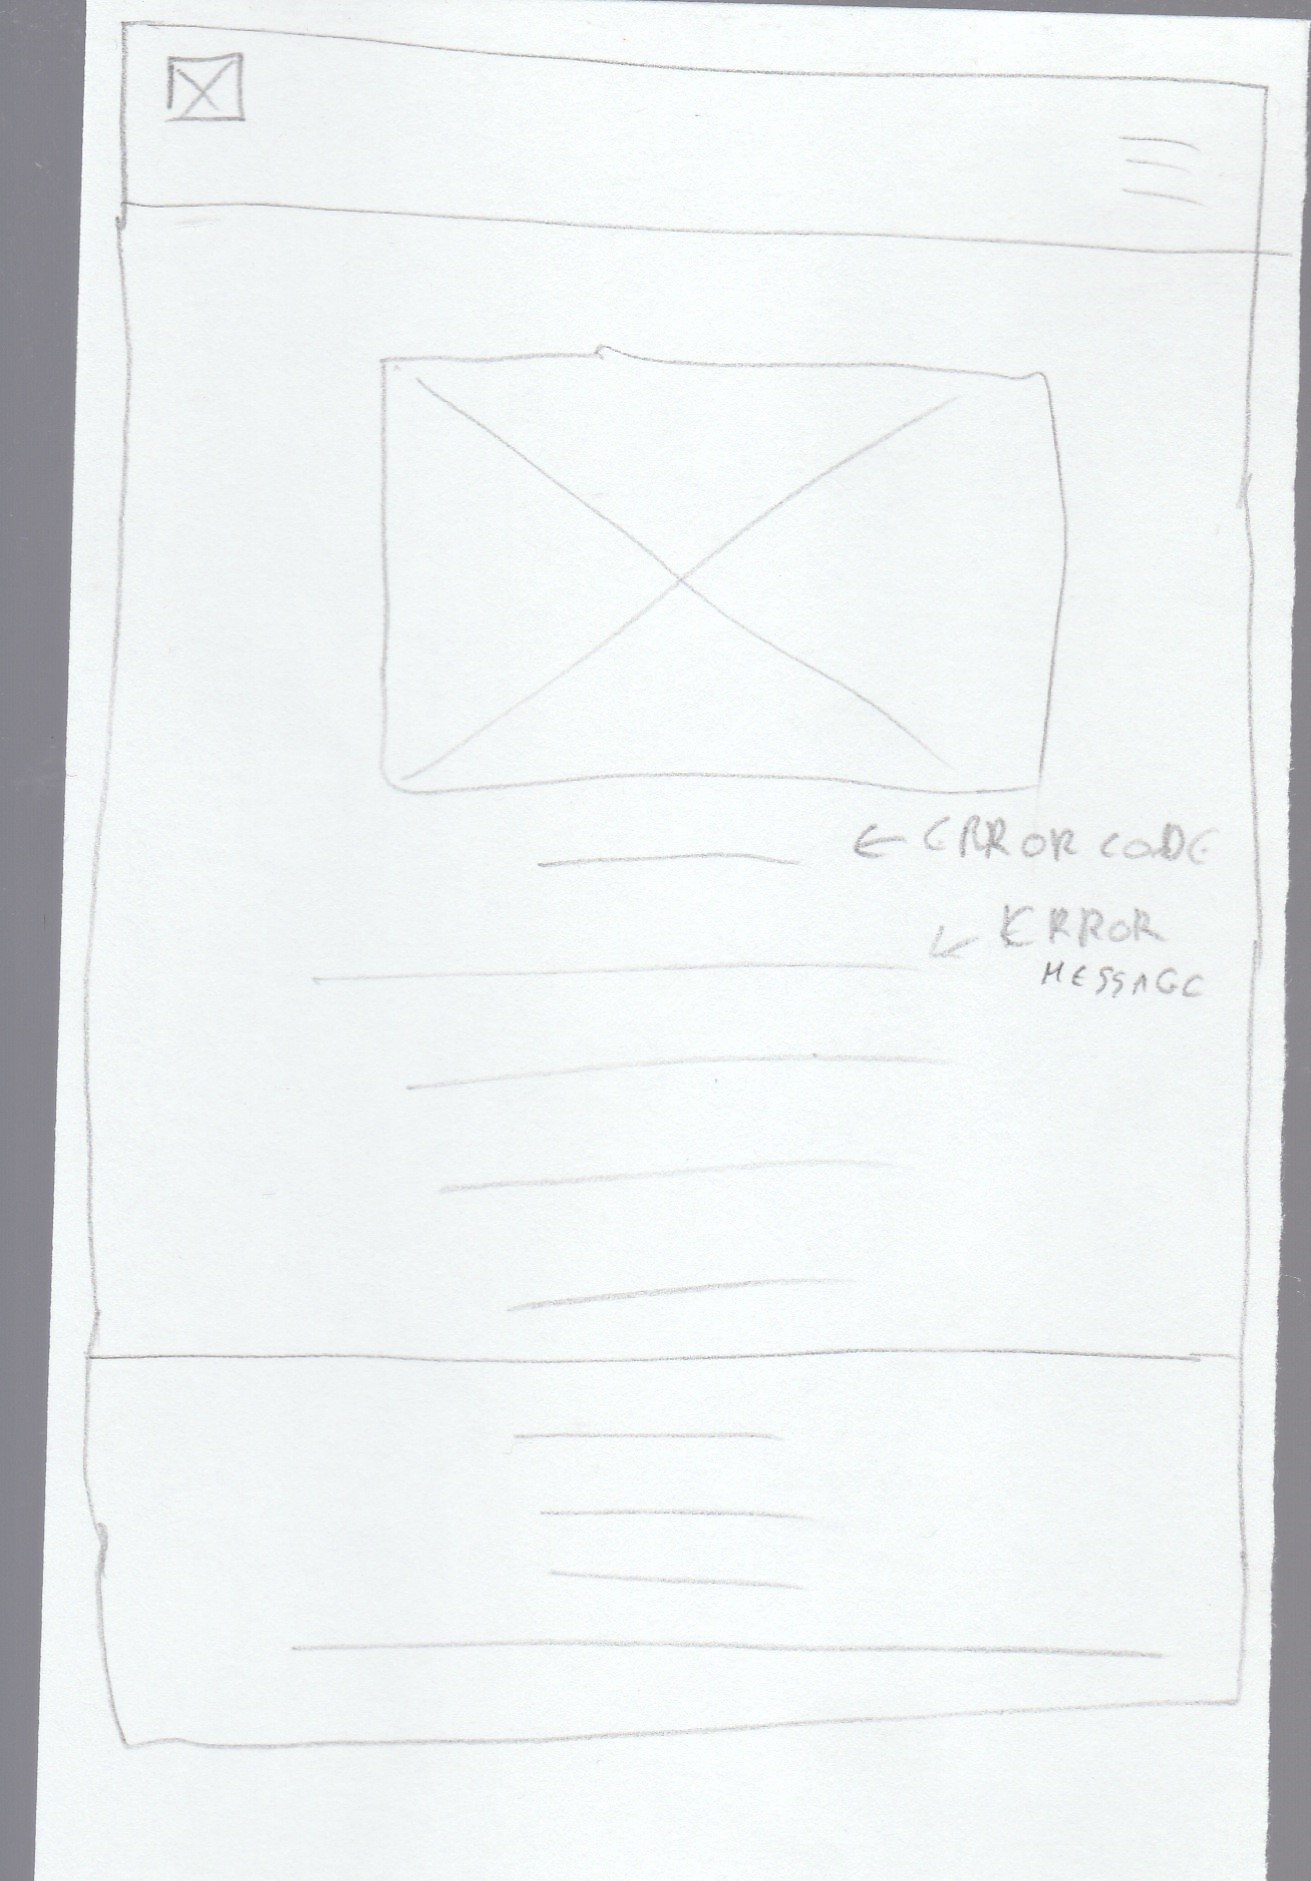 ← ERROR CODE
↙ ERROR
MESSAGE